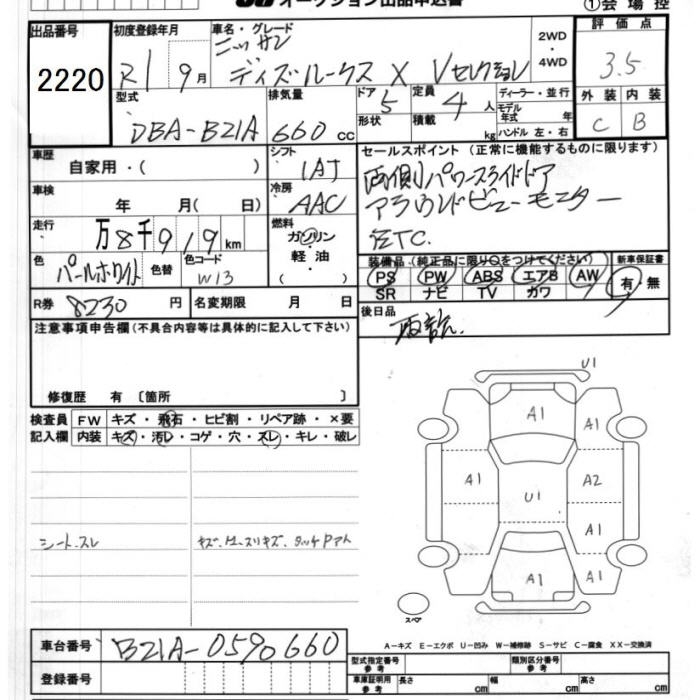 オークション出品申込書 ①会場控
出品番号 初度登録年月 車名・グレード 2WD・4WD 評価点
2220 R1 9月 ニッサン デイズルークス X Vセレクション 3.5
型式 排気量 ドア 5 定員 4人 ディーラー・並行 外装 内装
DBA-B21A 660cc 形状 積載 kg モデル年式 年 C B
ハンドル 左・右
車歴 自家用・( ) シフト IAT セールスポイント (正常に機能するものに限ります)
車検 年 月( 日) 冷房 AAC 両側パワースライドドア
アラウンドビューモニター
走行 万8千919km 燃料 ガソリン・軽油・( ) ETC.
色 パールホワイト 色替 色コード W13 装備品 (純正品に限り○をつけてください) 新車保証書
PS PW ABS エアB AW 有・無
SR ナビ TV カワ
R券 8230円 名変期限 月 日 後日品
注意事項申告欄 (不具合内容等は具体的に記入して下さい)
修復歴 有 〔箇所 〕
検査員 FW キズ・飛石・ヒビ割・リペア跡・×要
記入欄 内装 キズ・汚レ・コゲ・穴・スレ・キレ・破レ
U1
A1
A1
A1 A2
U1
A1
A1 A1
シートスレ
スペア
A-キズ E-エクボ U-凹み W-補修跡 S-サビ C-腐食 XX-交換済
車台番号 B21A-0590660
型式指定番号 参考 類別区分番号 参考
登録番号 車庫証明用 参考 長さ cm 幅 cm 高さ cm